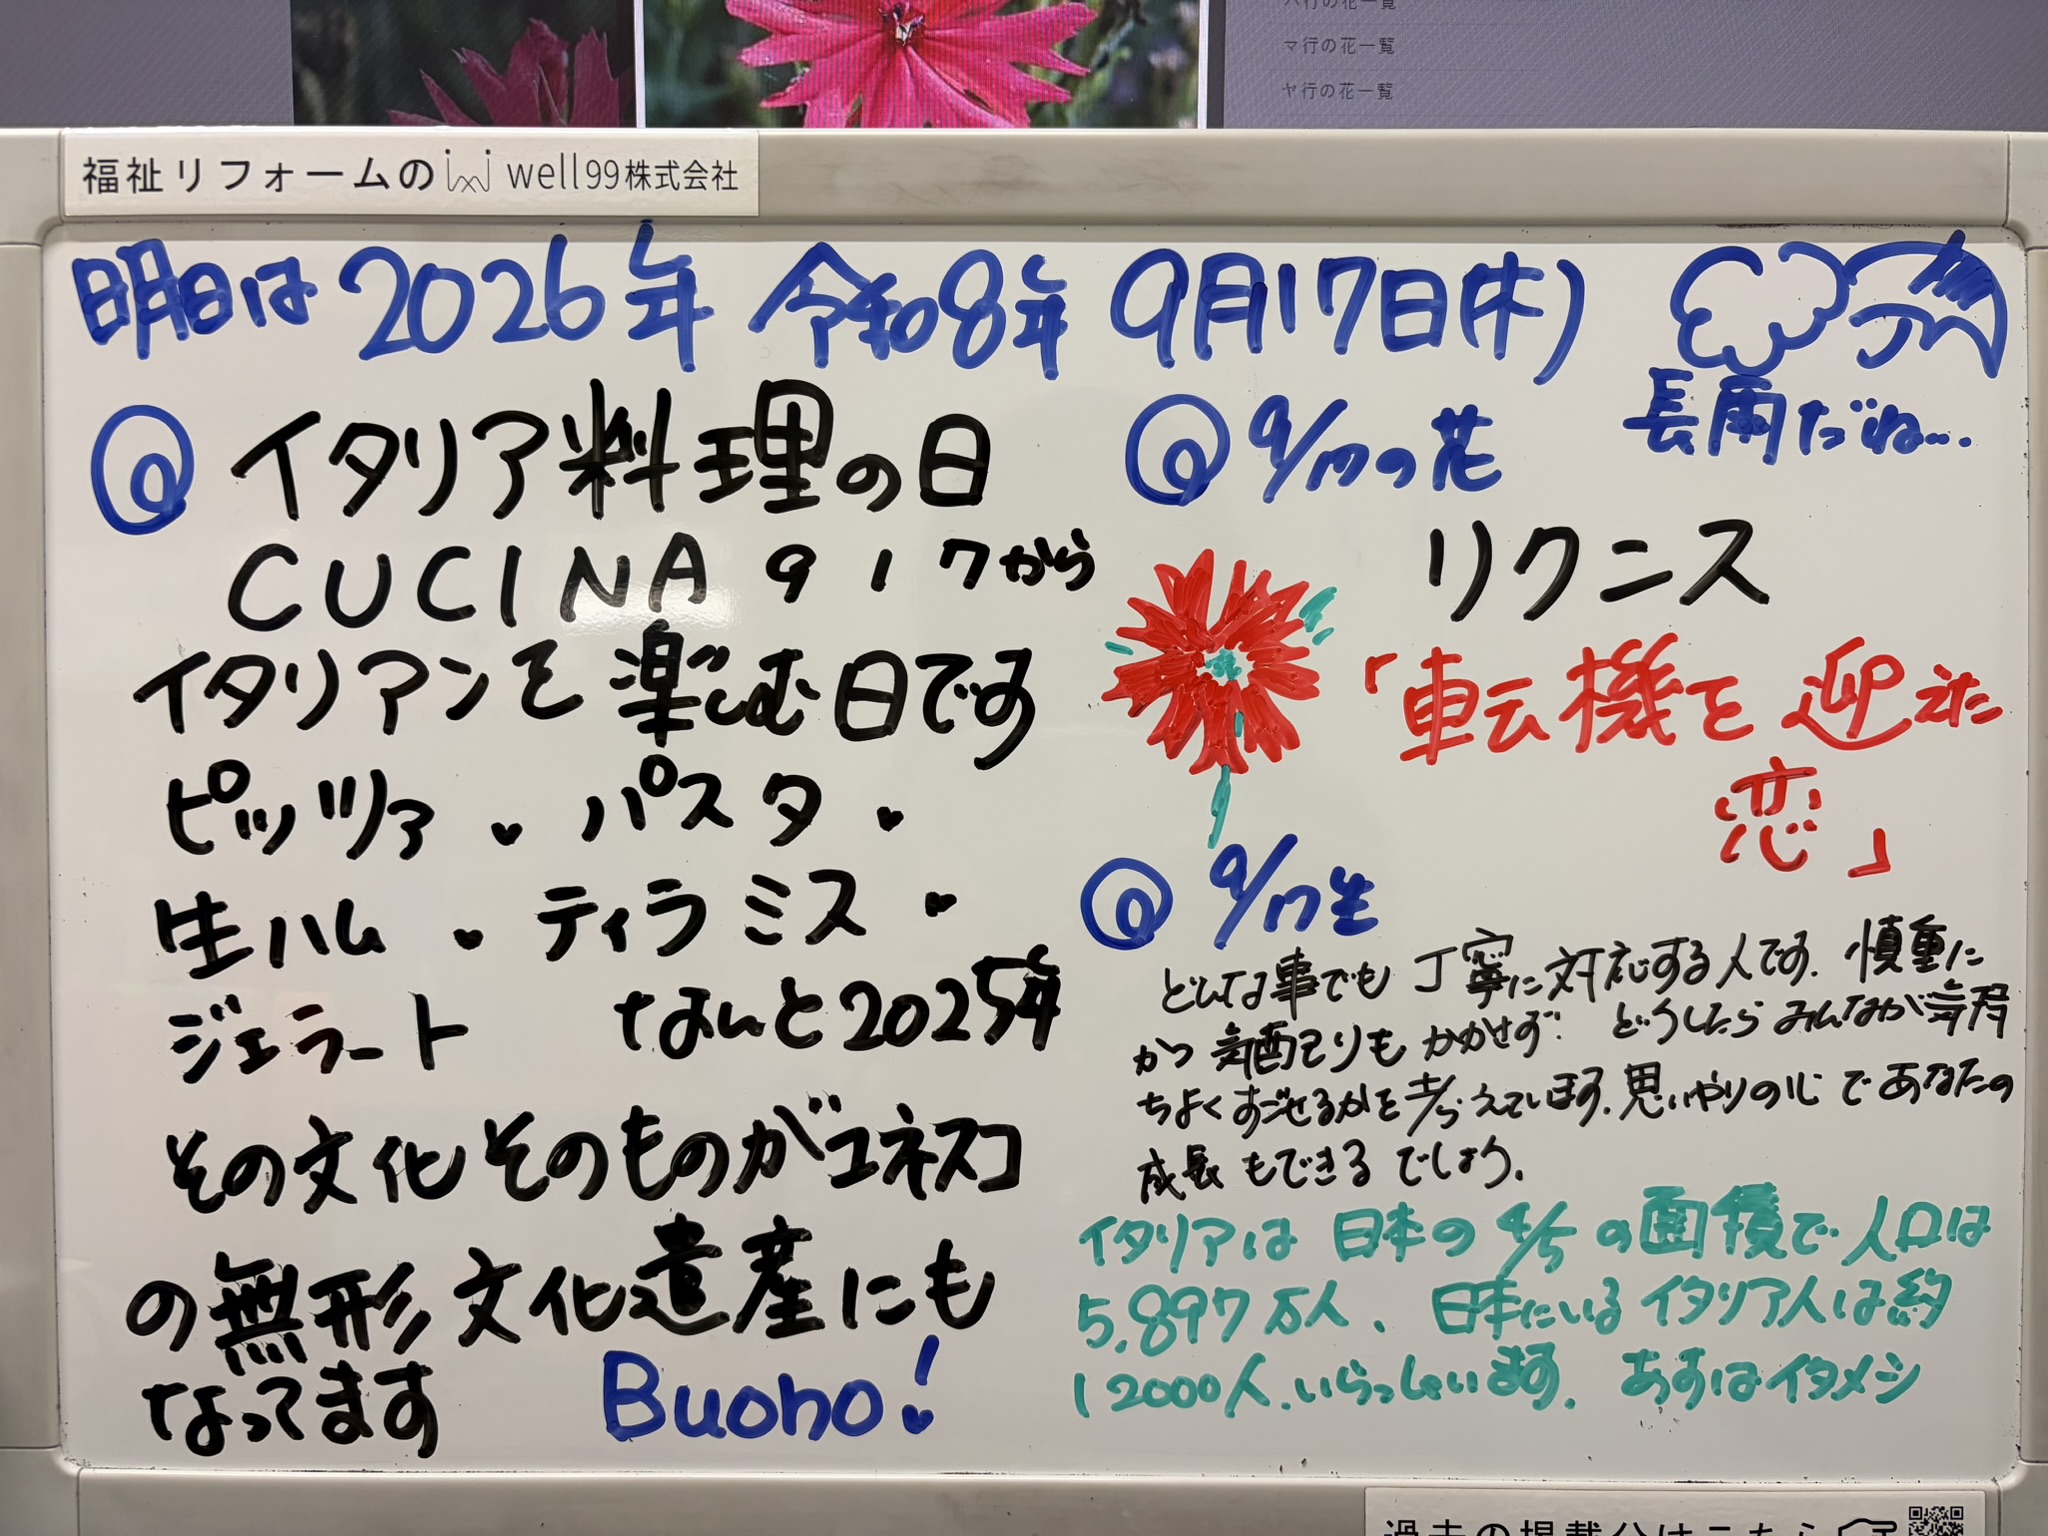 ハ行の花一覧
マ行の花一覧
ヤ行の花一覧
福祉リフォームの well99株式会社
明日は 2026年 令和8年 9月17日(木)
長雨だね…
イタリア料理の日
CUCINA 917から
イタリアンを楽しむ日です
ピッツァ・パスタ・
生ハム・ティラミス・
ジェラート なんと2025年
その文化そのものがユネスコ
の無形文化遺産にも
なってます Buono!
9/17の花
リクニス
「転機を迎えた
恋」
9/17生
どんな事でも丁寧に対応する人です. 慎重に
かつ気配りもかかせず. どうしたらみんなが気持
ちよくすごせるかを考えています. 思いやりの心であなたの
成長もできるでしょう.
イタリアは日本の4/5の面積で人口は
5.897万人、日本にいるイタリア人は約
12000人.いらっしゃいます. あすはイタメシ
過去の掲載分はこちら